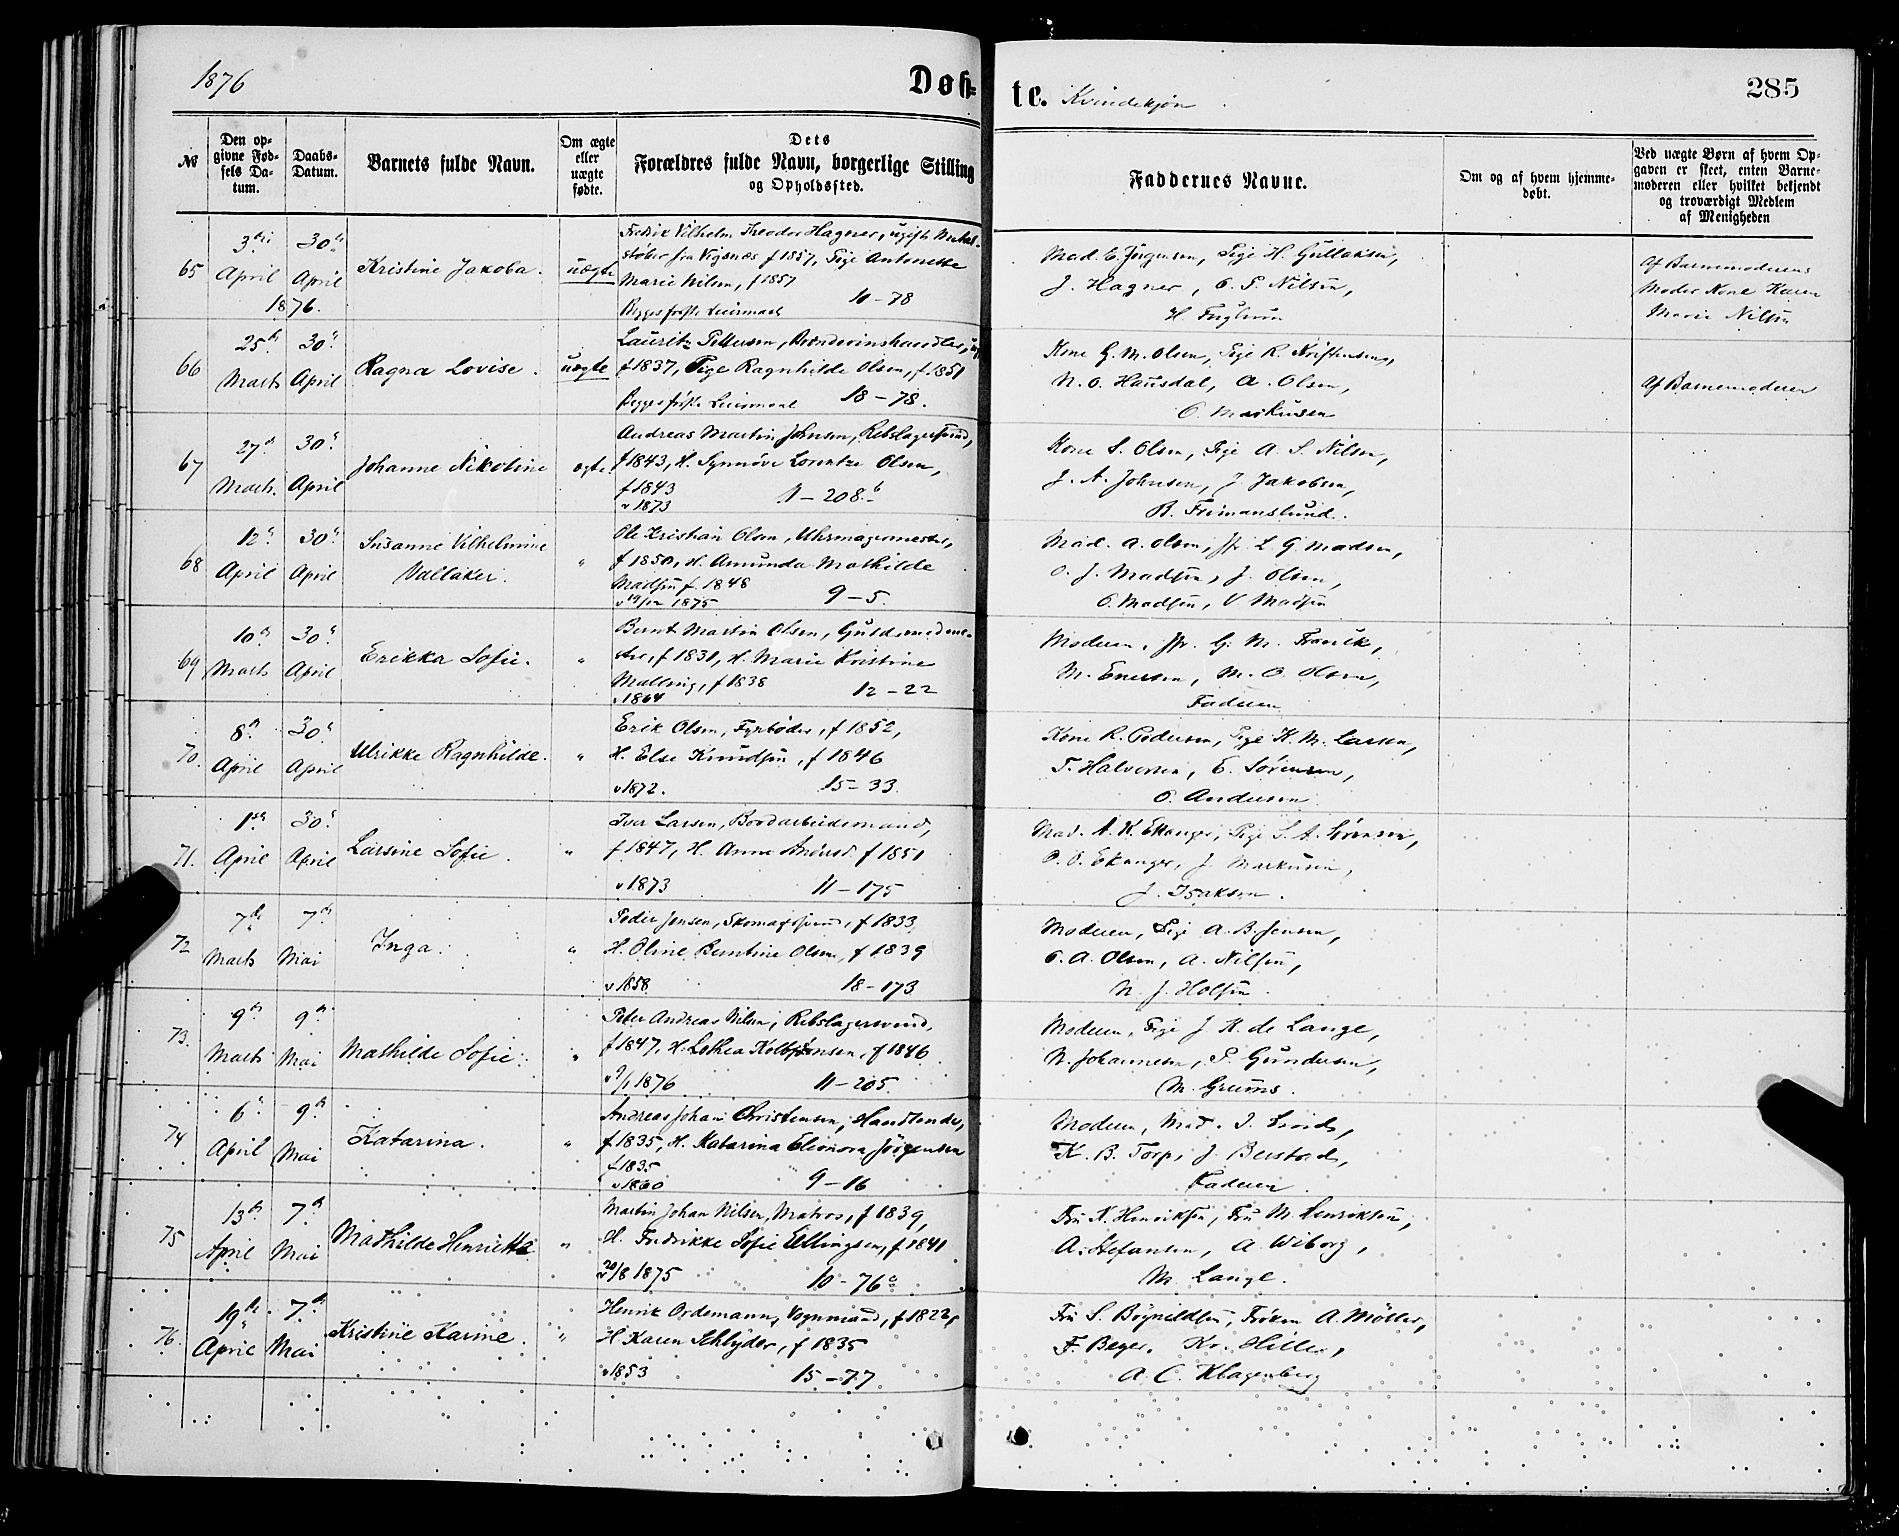 1876
Døb-
te. Kvindekjøn
285
№
Den op-
givne Fød-
sels Da-
tum.
Daabs-
Datum.
Barnets fulde Navn.
Om ægte
eller
uægte
fødte.
Dets
Forældres fulde Navn, borgerlige Stilling
og Opholdssted.
Faddernes Navne.
Om og af hvem hjemme-
døbt.
Ved uægte Børn af hvem Op-
gaven er skeet, enten Barne-
moderen eller hvilket bekjendt
og troværdigt Medlem
af Menigheden
65
3die April 1876.
30te April
Kristine Jakoba.
uægte
Fredrik Vilhelm Theodor Hagner, ugift
fra Vigsnæs f 1857, Pige Antonette
Marie Nilsen, f 1857
Begges første Leiermaal 11-78
Mad. E. Jørgensen, Pige H. Gullaksen,
J. Hagner, O. S. Nilsen,
H.
Af Barnemoderens
Moder Kone Karen
Marie Nilsen
66
25de Marts
30te April
Ragna Lovise.
uægte
Lauritz Pettersen, Brændevinshandler,
f 1837, Pige Ragnhilde Olsen, f 1851
Begges første Leiermaal 18-78.
Kone G. M. Olsen, Pige R. Kristensen,
N. O. Hausdal, A. Olsen,
O. Markusen
Af Barnemoderen
67
27de Marts.
30te April
Johanne Nikoline
ægte.
Andreas Martin Johnsen, Rebslagersvend,
f 1843, H. Synnøve Lorentze Olsen,
f 1843
v 1873 11-208b
Kone S. Olsen, Pige A. S. Nilsen,
J. A. Johnsen, J Jakobsen,
B. Frimanslund.
68
12te April
30te April
Susanne Vilhelmine
Vallaker.
"
Ole Kristian Olsen, Uhrmagermester,
f 1850, H. Amunda Mathilde
Madsen f. 1848
v 19/12 1875 9-5.
Mad. A. Olsen, Jfr. L G. Madsen,
O. J. Madsen, J. Olsen,
O. Madsen, V Madsen
69
10de Marts
30te April
Erikka Sofie.
"
Bernt Martin Olsen, Guldsmedme-
ster, f 1831, H. Marie Kristine
Malling, f 1838
v 1864 12-22
Moderen, Jfr. G. M.
M. Enersen, M. O. Olsen,
Faderen
70.
8de April
30te April
Ulrikke Ragnhilde.
"
Erik Olsen, Fyrbøder, f 1852,
H. Else Knudsen, f 1846
v 1872. 15-33.
Kone R. Pedersen, Pige K. M. Larsen,
T. Halvorsen, E. Sørensen,
O. Andersen
71.
1ste April
30te April
Larsine Sofie.
"
Iver Larsen, Bordarbeidsmand,
f 1847, H. Anne f 1851
v 1873 11-175
Mad. A. K. Ekanger, Pige S. A. Sørensen,
O. O. Ekanger, J. Markusen,
J. Isaksen.
72
7de Marts
7de Mai
Inga.
"
Peder Jensen, Skomagersvend, f 1833
H. Oline Berntine Olsen, f 1839
v 1858 18-173
Moderen, Pige A. B. Jensen,
O. A. Olsen, A. Nilsen,
N. J. Holsen.
73.
9de Marts
9de Mai
Mathilde Sofie.
"
Peter Andreas Nilsen, Rebslagersvend,
f 1847, H. Lothea Kolbjørnsen, f 1846
v 9/1 1876 11-205
Moderen, Pige J. K. de Lange,
N. Johannesen, P. Gundersen,
M. Greums.
74
6te April
9de Mai
Katarina.
"
Andreas Johan Christensen, Handlende,
f 1835, H. Katarina Eleonora Jörgensen
f 1835
v 1860 9-16
Moderen, Mad.
K. B. Torp, J. Berstad,
Faderen.
75
13de April
7de Mai
Mathilde Henriette
"
Martin Johan Nilsen, Matros, f 1839,
H. Fredrikke Sofie Ellingsen, f 1841
v 20/8 1875 10-76a
Fru K. Henriksen, Fru M. Henriksen,
A. Stefansen, A. Wiborg,
M. Lange.
76.
19de April
7de Mai
Kristine Karine.
"
Henrik Ordemann, Vognmand, f 1822,
H Karen Schlyder, f 1835
v 1853 15-77
Fru S. Bøgnildsen, Frøken A. Møller,
F. Beyer, Kr. Hille,
A. C. Klagenberg